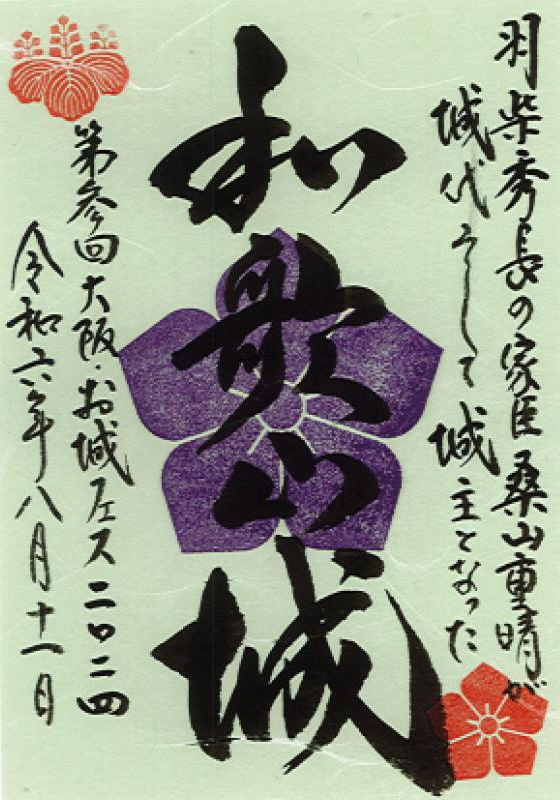 羽柴秀長の家臣桑山重晴が
城代そして城主となった
和歌山城
第参回大阪・お城フェス二〇二四
令和六年八月十一日